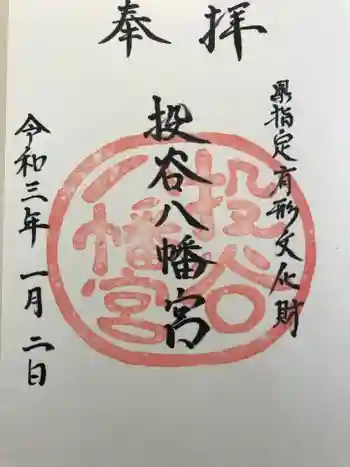 奉拝
県指定有形文化財
投谷八幡宮
令和三年一月二日
投谷
八幡宮